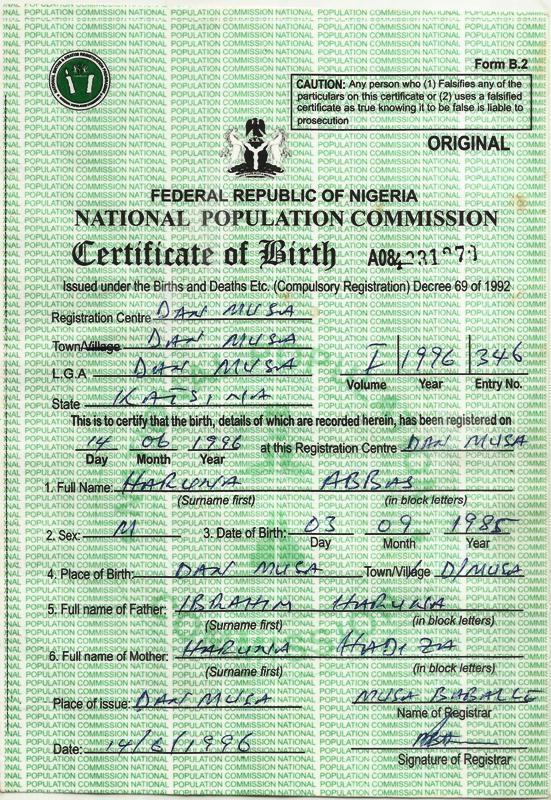 Form B.2
CAUTION: Any person who (1) Falsifies any of the
particulars on this certificate or (2) uses a falsified
certificate as true knowing it to be false is liable to
prosecution
ORIGINAL
FEDERAL REPUBLIC OF NIGERIA
NATIONAL POPULATION COMMISSION
Certificate of Birth
Issued under the Births and Deaths Etc. (Compulsory Registration) Decree 69 of 1992
Registration Centre DAN MUSA
Town/Village DAN MUSA
L.G.A DAN MUSA I 1996 346
Volume Year Entry No.
State KATSINA
This is to certify that the birth, details of which are recorded herein, has been registered on
14 06 1996 at this Registration Centre DAN MUSA
Day Month Year
1. Full Name: HARUNA ABBAS
(Surname first) (in block letters)
2. Sex: M 3. Date of Birth: 03 09 1985
Day Month Year
4. Place of Birth: DAN MUSA Town/Village D/MUSA
5. Full name of Father: IBRAHIM HARUNA
(Surname first) (in block letters)
6. Full name of Mother: HARUNA HADIZA
(Surname first) (in block letters)
Place of issue: DAN MUSA MUSA BABALLE
Name of Registrar
Date: 14/6/1996
Signature of Registrar